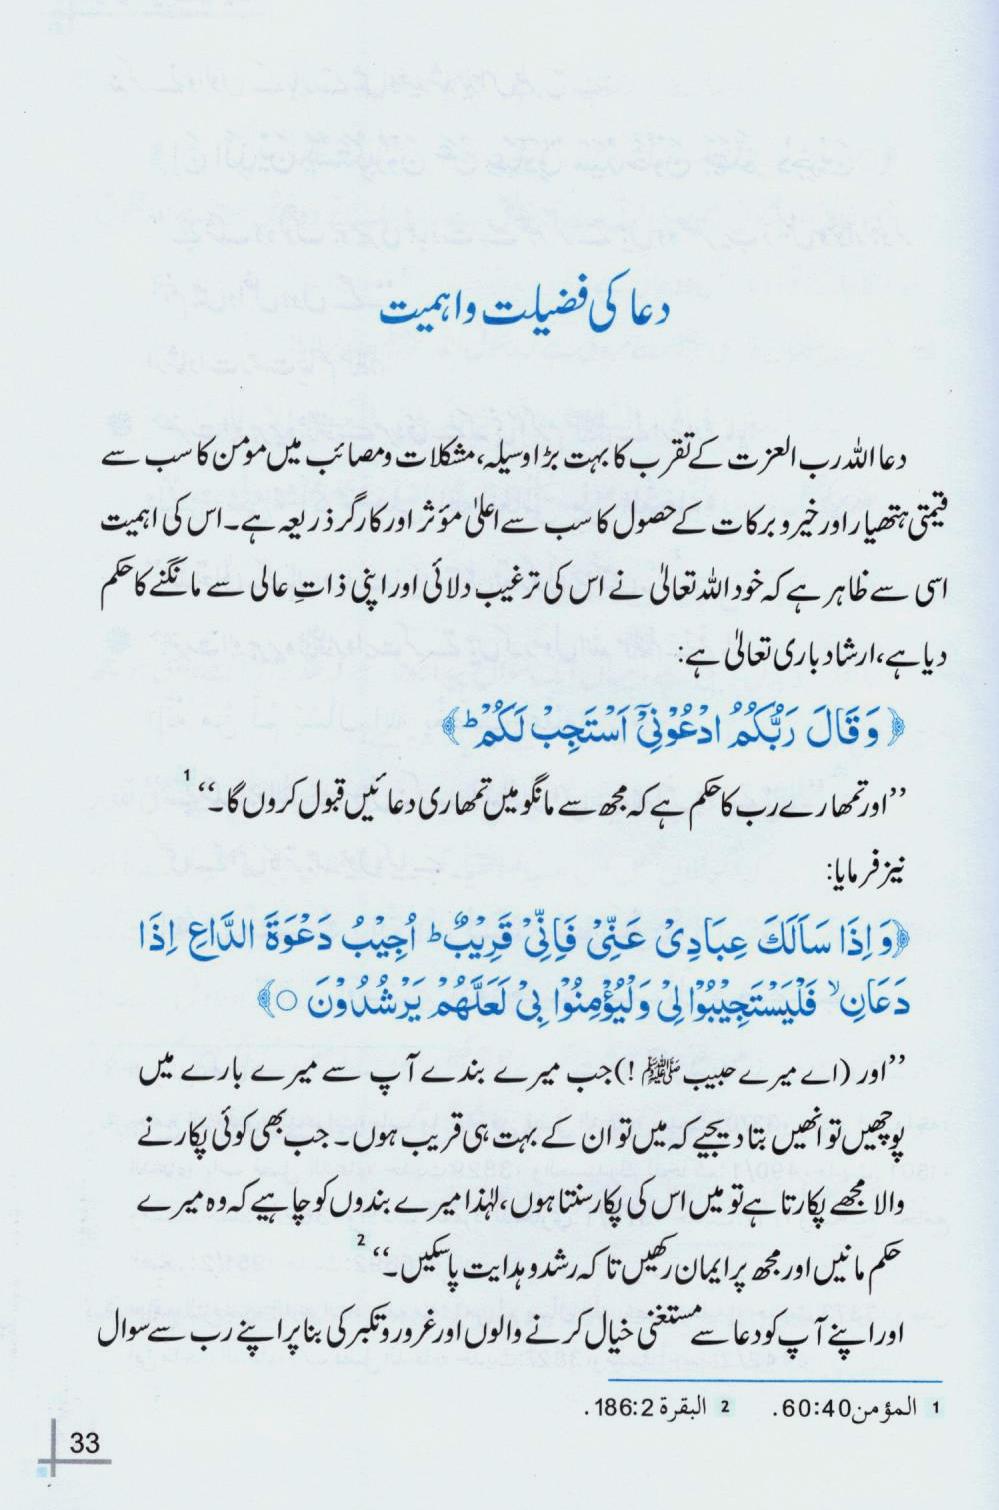 دعا کی فضیلت و اہمیت
دعا اللہ رب العزت کے تقرب کا بہت بڑا وسیلہ، مشکلات و مصائب میں مومن کا سب سے
قیمتی ہتھیار اور خیر و برکات کے حصول کا سب سے اعلیٰ مؤثر اور کارگر ذریعہ ہے۔ اس کی اہمیت
اسی سے ظاہر ہے کہ خود اللہ تعالیٰ نے اس کی ترغیب دلائی اور اپنی ذاتِ عالی سے مانگنے کا حکم
دیا ہے، ارشاد باری تعالیٰ ہے:
﴿ وَقَالَ رَبُّكُمُ ادْعُوْنِيْٓ اَسْتَجِبْ لَكُمْ ؕ ﴾
’’اور تمھارے رب کا حکم ہے کہ مجھ سے مانگو میں تمھاری دعائیں قبول کروں گا۔‘‘ 1
نیز فرمایا:
﴿وَ اِذَا سَاَلَكَ عِبَادِيْ عَنِّيْ فَاِنِّيْ قَرِيْبٌ ؕ اُجِيْبُ دَعْوَةَ الدَّاعِ اِذَا
دَعَانِ ۙ فَلْيَسْتَجِيْبُوْا لِيْ وَلْيُؤْمِنُوْا بِيْ لَعَلَّهُمْ يَرْشُدُوْنَ ○﴾
’’اور (اے میرے حبیب ﷺ !) جب میرے بندے آپ سے میرے بارے میں
پوچھیں تو انھیں بتا دیجیے کہ میں تو ان کے بہت ہی قریب ہوں۔ جب بھی کوئی پکارنے
والا مجھے پکارتا ہے تو میں اس کی پکار سنتا ہوں، لہٰذا میرے بندوں کو چاہیے کہ وہ میرے
حکم مانیں اور مجھ پر ایمان رکھیں تاکہ رشد و ہدایت پا سکیں۔‘‘ 2
اور اپنے آپ کو دعا سے مستغنی خیال کرنے والوں اور غرور و تکبر کی بنا پر اپنے رب سے سوال
1 المؤمن 60:40. 2 البقرة 186:2.
33